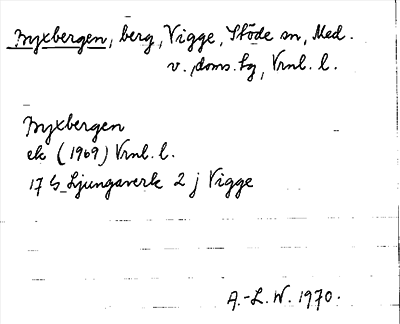 Byxbergen, berg, Vigge, Stöde sn, Med.
v. doms. sg, Vrnl. l.
Byxbergen
ek (1969) Vrnl. l.
17 G Ljungaverk 2 j Vigge
A.-L. W. 1970.